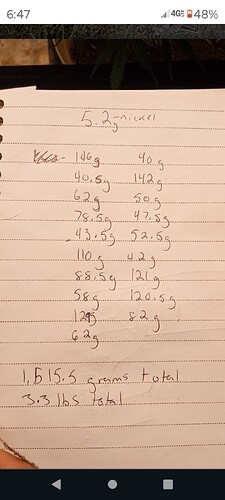 6:47 4G 48%
5.2g-nickel
146g 40g
40.5g 142g
62g 50g
78.5g 47.5g
43.5g 52.5g
110g 42g
88.5g 121g
58g 120.5g
129g 82g
62g
1,515.5 grams total
3.3 lbs total